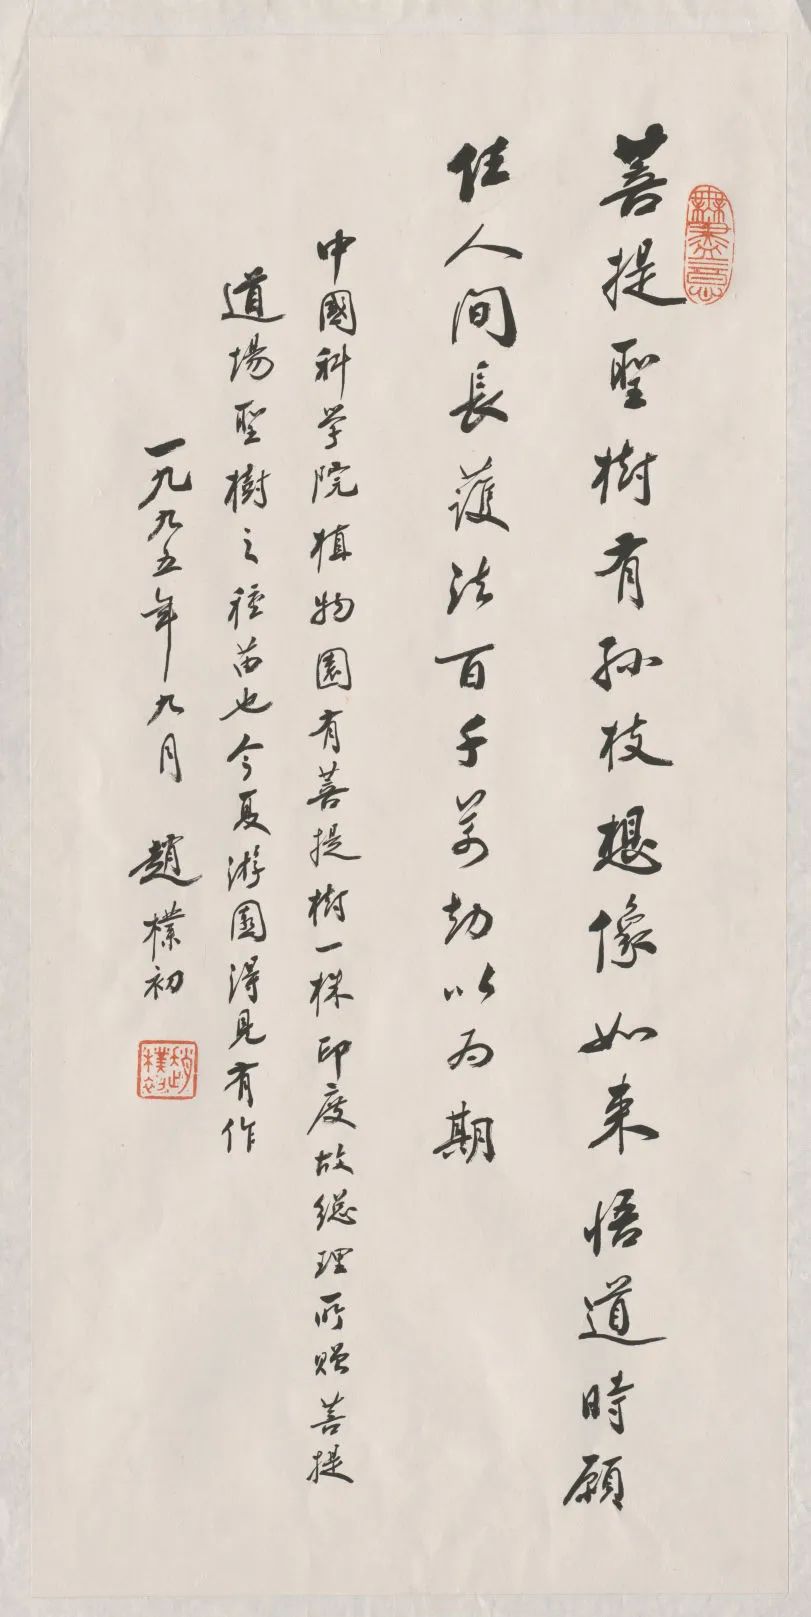 菩提聖樹有孙枝想像如来悟道時願
住人间長護法百千萬劫以为期
中國科学院植物園有菩提樹一株印度故総理所赠菩提
道場聖樹之種苗也今夏游園得見有作
一九九五年九月 趙樸初
無盡意
趙樸初